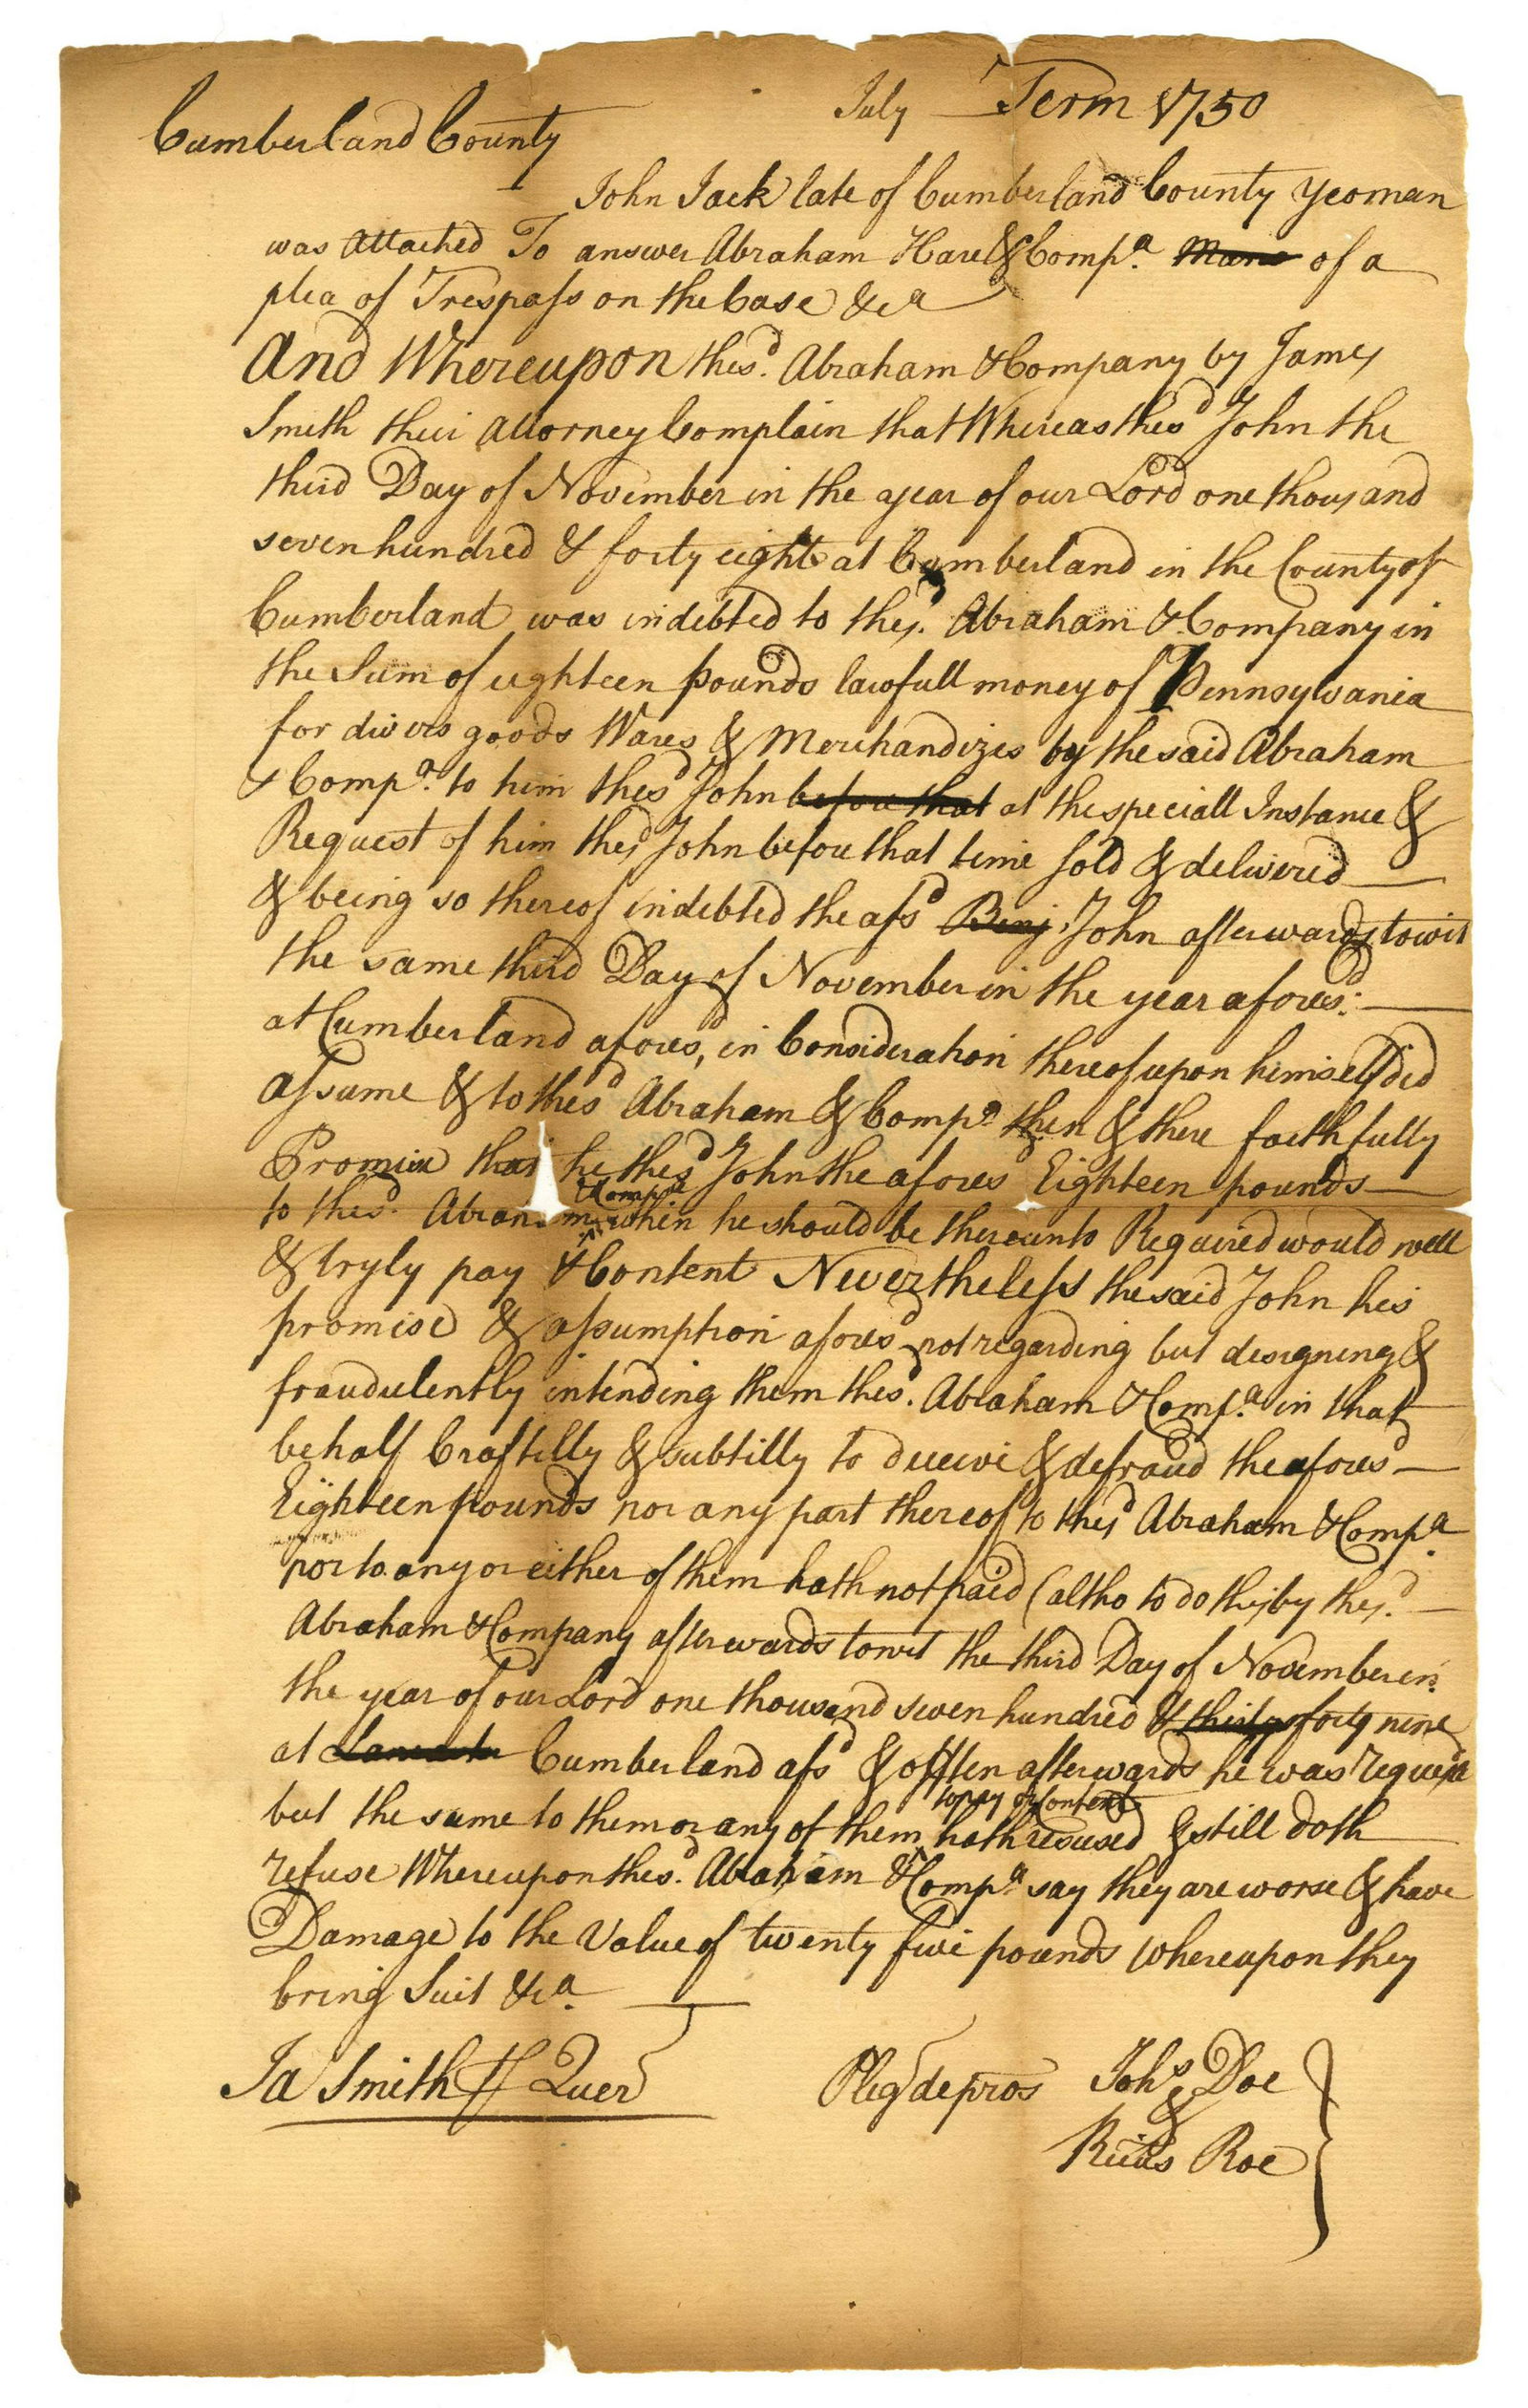 July Term 1750
Cumberland County
John Jack late of Cumberland County yeoman
was Attached To answer Abraham Hare & Compa. of a
plea of Trespass on the Case &ca
And Whereupon the sd. Abraham & Company by James
Smith their Attorney Complain that Whereas the sd John the
third Day of November in the year of our Lord one thousand
seven hundred & forty eight at Cumberland in the County of
Cumberland was indebted to the sd. Abraham & Company in
the Sum of eighteen pounds lawfull money of Pennsylvania
for divers goods Wares & Merchandizes by the said Abraham
& Compa. to him the sd John before that at the speciall Instance &
Request of him the sd John before that time sold & delivered
& being so thereof indebted the afsd Benj. John afterwards towit
the same third Day of November in the year aforesd:
at Cumberland aforesd, in Consideration thereof upon himself did
assume & to the sd Abraham & Compa then & there faithfully
Promise that he the sd John the aforesd Eighteen pounds
to the sd. Abraham & Compa when he should be thereunto Required would well
& tryly pay & Content Nevertheless the said John his
promise & assumption aforesd not regarding but designing &
fraudulently intending them the sd. Abraham & Compa. in that
behalf Craftilly & subtilly to deceive & defraud the aforesd
Eighteen pounds nor any part thereof to the sd Abraham & Compa.
nor to any or either of them hath not paid (altho to do this by the sd.
Abraham & Company afterwards towit the third Day of November in
the year of our Lord one thousand seven hundred & thirty forty nine
at Lancaster Cumberland afsd & often afterwards he was requird
but the same to them or any of them to pay or Content hath refused & still doth
refuse Whereupon the sd. Abraham & Compa. say they are worse & have
Damage to the Value of twenty five pounds whereupon they
bring Suit &ca.
Ja Smith pr Quer
Pleg de pros Johs Doe
&
Ricus Roe